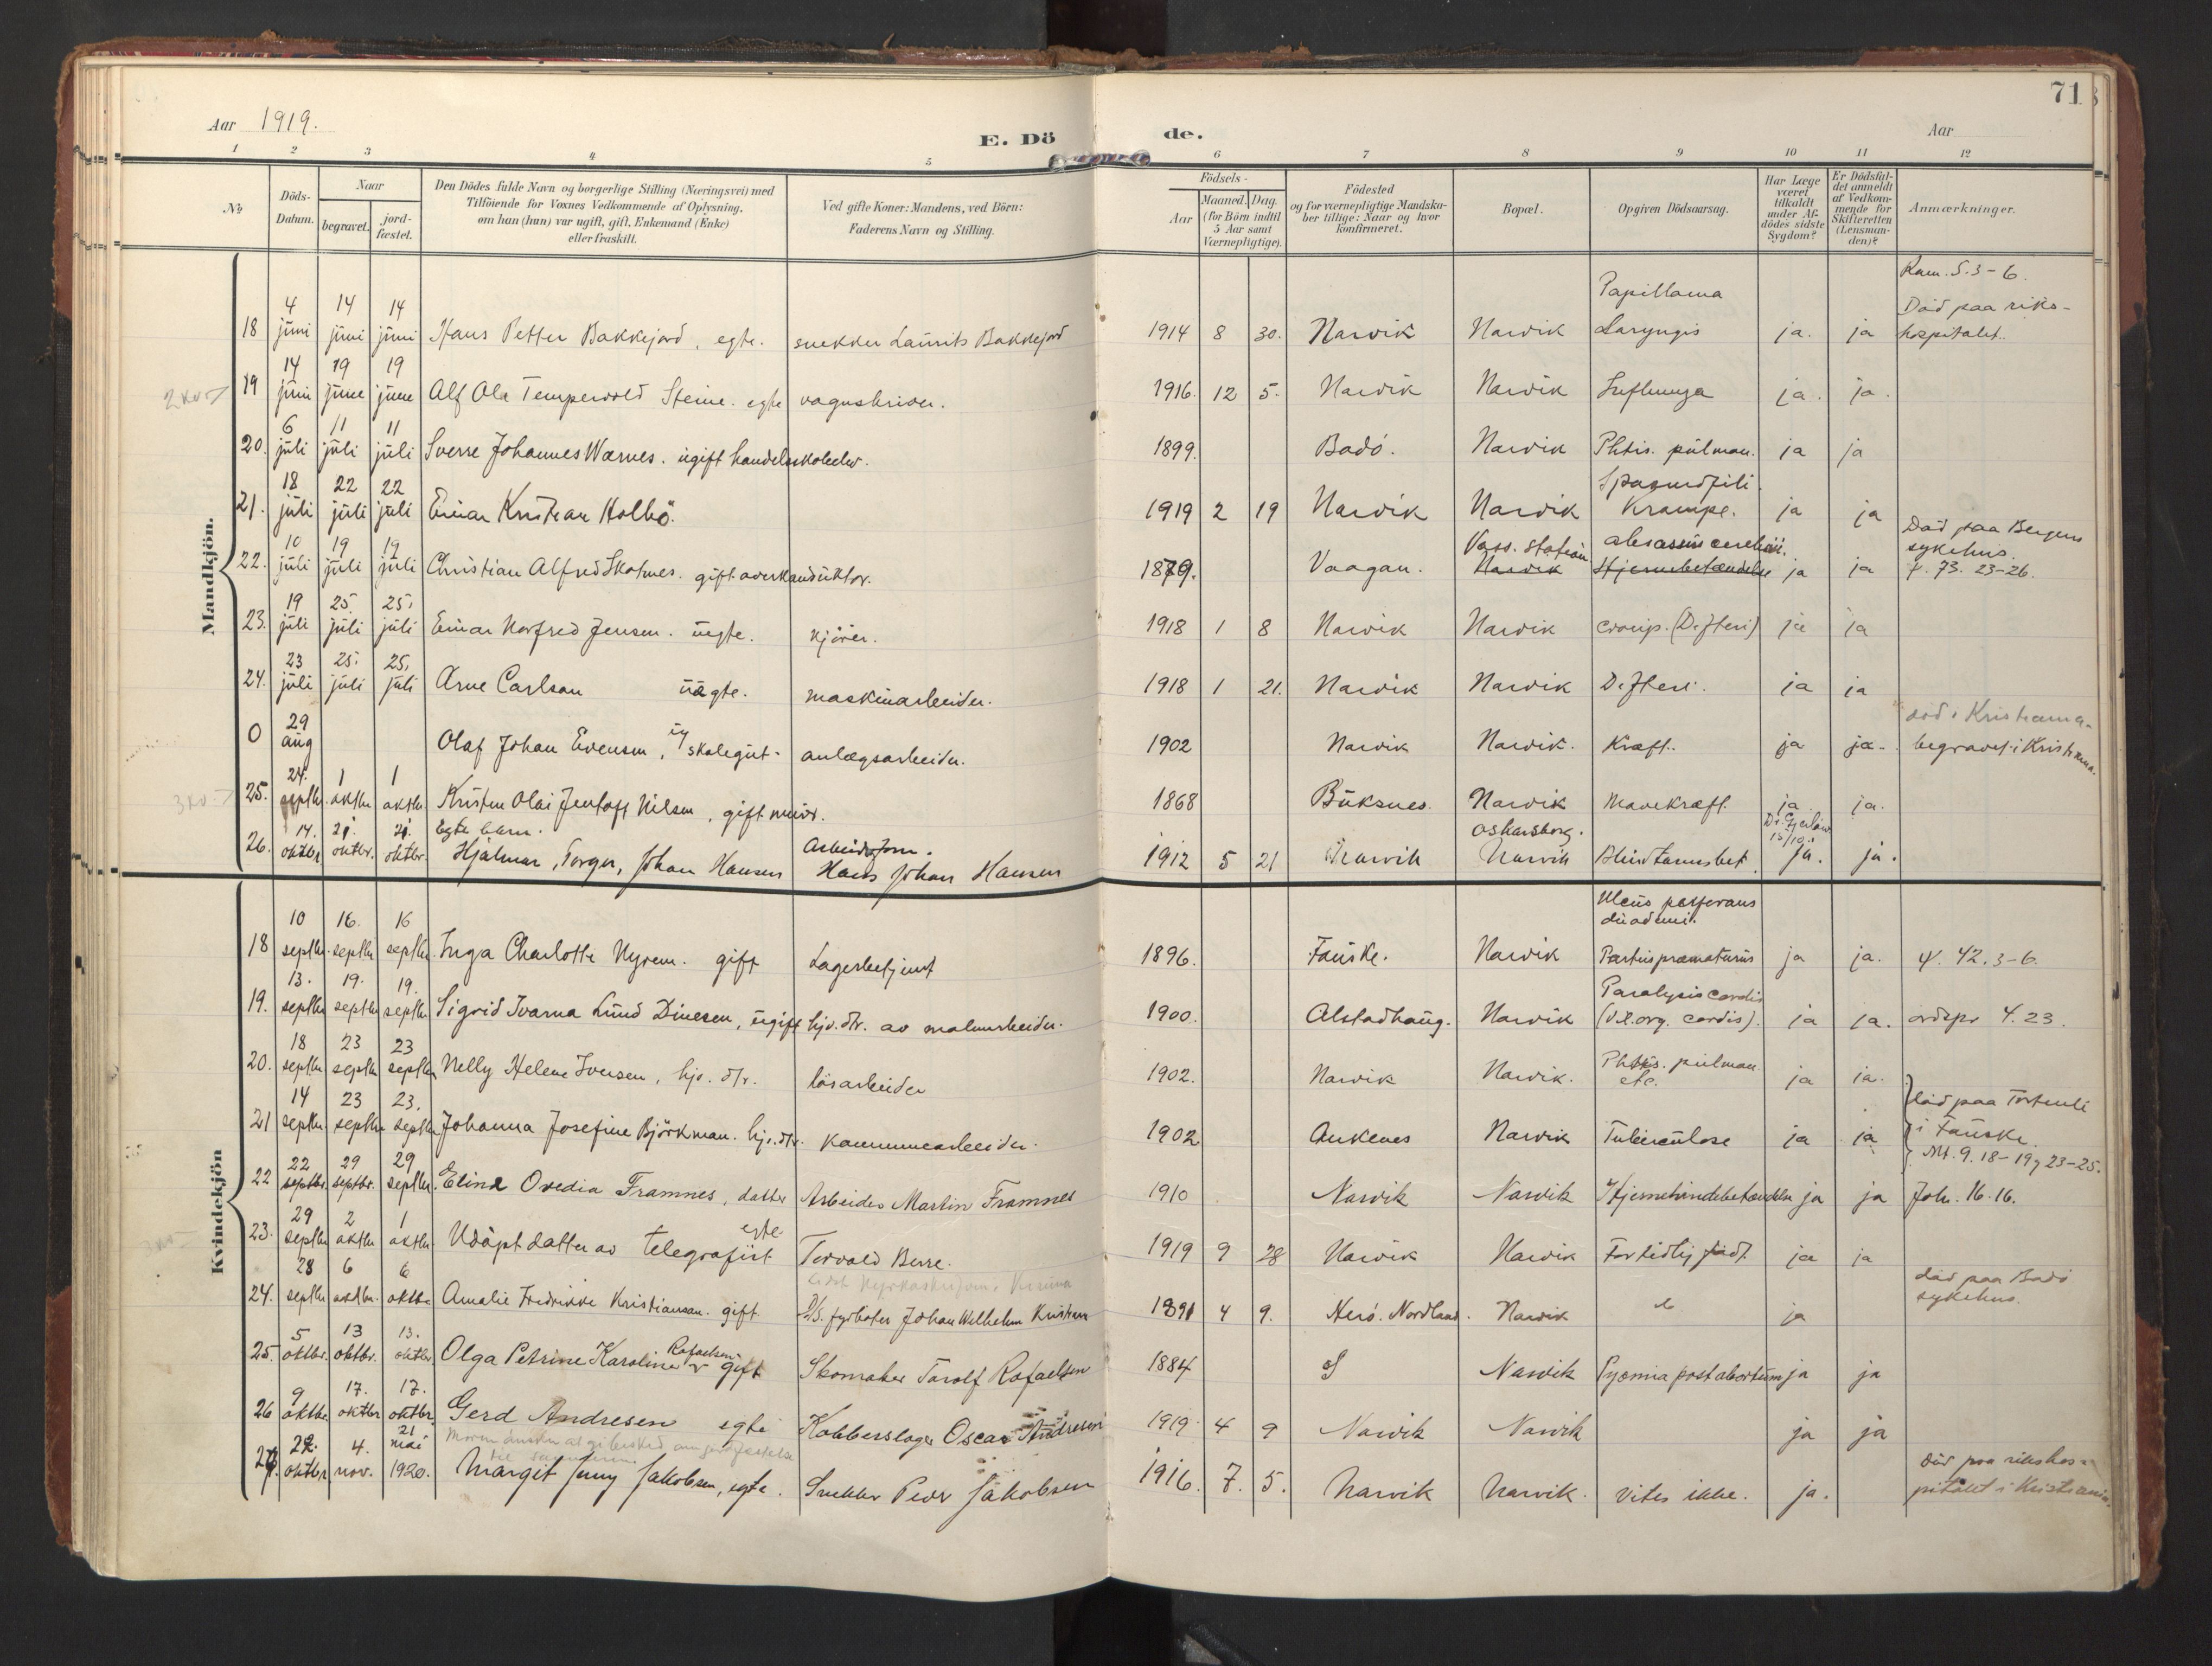 71
Aar 1919.
E. Döde.
Aar
1 2 3 4 5 6 7 8 9 10 11 12
№
Döds-Datum.
Naar
begravet.
jordfæstet.
Den Dödes fulde Navn og borgerlige Stilling (Næringsvei) med
Tilföiende for Voxnes Vedkommende af Oplysning.
om han (hun) var ugift, gift, Enkemand (Enke)
eller fraskilt.
Ved gifte Koner: Mandens, ved Börn:
Faderens Navn og Stilling.
Födsels-
Aar
Maaned. Dag.
(for Börn indtil
5 Aar samt
Værnepligtige).
Födested
og for værnepligtige Mandska-
ber tillige: Naar og hvor
konfirmeret.
Bopæl.
Opgiven Dödsaarsag.
Har Læge
været
tilkaldt
under Af-
dödes sidste
Sygdom?
Er Dödsfal-
det anmeldt
af Vedkom-
mende for
Skifteretten
(Lensman-
den)?
Anmærkninger.
Mandkjön.
18 4 juni 14 juni 14 juni Hans Petter Bakkejord, egte. snekker Laurits Bakkejord 1914 8 30. Narvik Narvik Papilloma Laryngis ja. ja Rom. 5.3-6. Död paa riks-hospitalet.
19 14 juni 19 june 19 june Alf Ola Tempervold Steine. egte vognskriver. 1916. 12 5. Narvik Narvik Influenza ja. ja.
20. 6 juli 11 juli 11 juli Sverre Johannes Warnes. ugift handelsskoleelev. 1899. Bodö. Narvik Phtis. pulman. ja ja
21. 18 juli 22 juli 22 juli Einar Kristian Holbö. 1919 2 19 Narvik Narvik Krampe. ja ja
22. 10 juli 19 juli 19 juli Christian Alfred Skotnes. gift overkonduktör. 1879. Vaagan. Voss. station Narvik Hjernebetændelse ja ja Död paa Bergens sykehus. 73. 23-26.
23. 19 juli 25. juli 25. juli Einar Norfred Jensen. uegte. kjörer. 1918 1 8 Narvik Narvik Croup. (Difteri) ja ja
24. 23 juli 25. juli 25. juli Arne Carlson uægte. maskinarbeider. 1918 1 21. Narvik Narvik Difteri. ja ja
0 29 aug Olaf Johan Evensen, skolegut- anlægsarbeider. 1902 Narvik Narvik. Kræft. ja ja- död i Kristiania- begravet i Kristiania.
25. 24. septbr. 1 oktbr 1 oktbr. Kristen Olai Jentoft Nilsen, gift murer. 1868 Buksnes. Narvik Mavekræft. ja ja.
26. 14. oktbr 21. oktbr. 21. oktbr. Egte barn. Hjalmar, Torger, Johan Hansen Arbeidsform. Hans Johan Hansen 1912 5 21 Narvik Oskarsborg. Narvik Blindtarmsbet. ja. ja.
Kvindekjön
18 10 septbr. 16. septbr 16 septbr. Inga Charlotte Nyrem. gift Lagerbetjent 1896. Fauske. Narvik Ulcus perforans duodeni. Partus præmaturus ja ja. 42. 3-6.
19. 13. septbr 19. septbr 19. septbr. Sigrid Ivarna Lund Dinesen, ugift hjv. dtr. av malmarbeider. 1900. Alstadhaug. Narvik Paralysis cordis (V. org. cordis). ja ja. ordspr 4. 23.
20. 18 septbr 23 septbr 23 septbr Nelly Helene Iversen, hjv. dtr. lösarbeider 1902. Narvik Narvik. Phtisis. pulman. etc. ja ja.
21 14 septbr. 23 septbr 23. septbr Johanna Josefine Björkman. hjv. dtr. kommunearbeider. 1902 Ankenes Narvik Tuberculose ja ja död paa i Fauske. Mt. 9. 18-19, 23-25.
22 22 septbr. 29 septbr. 29 septbr. Eline Ovedia Framnes, datter Arbeider Martin Framnes 1910 Narvik Narvik Hjernehindebetændelse ja ja Joh. 16. 16.
23. 29 septbr 2 oktbr 1 oktbr. Udöpt datter av egte telegrafist Torvald Berre. 1919 9 28 Narvik Narvik For tidlig födt. ja ja
24. 28 septbr 6 oktbr. 6 oktbr. Amalie Fredrikke Kristiansen. gift D/S. fyrböter Johan Wilhelm Kristiansen 1891 4 9. Herö. Nordland. Narvik ja död paa Bodö sykehus.
25. 5 oktbr. 13 oktbr. 13. oktbr Olga Petrine Karoline Rafaelsen gift Skomaker Torolf Rafaelsen 1884 Narvik Pyæmia post abortum ja ja
26 9 oktbr. 17. oktbr 17. oktbr. Gerd Andresen egte Kobberslager Oscar Andresen 1919. 4 9 Narvik Narvik ja ja
27. 22. oktbr 4. nov. 21 mai 1920. Margit Jenny Jakobsen, egte. Snekker Peder Jakobsen 1916. 7. 5. Narvik Narvik. Vites ikke. ja. Död paa rikshos-pitalet i Kristiania.